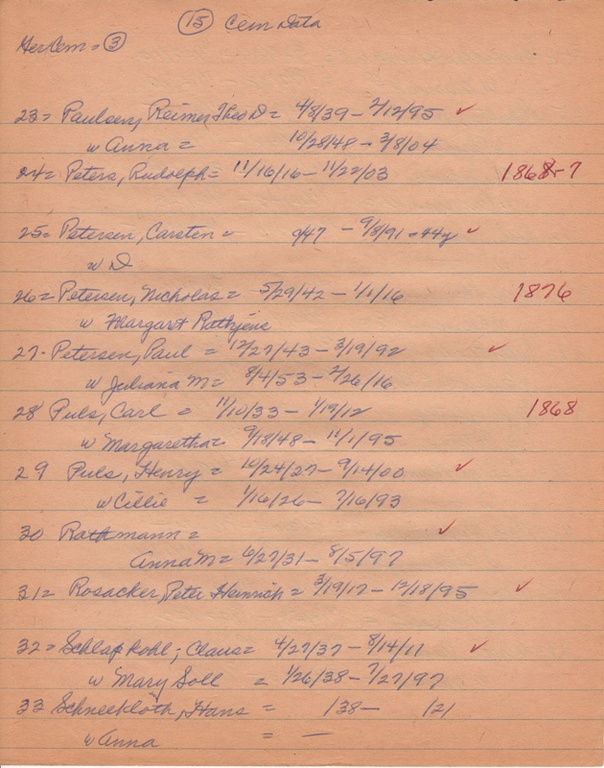 (15) Cem Data
Ger Cem = (3)
23 = Paulsen, Reimer Theo D = 4/8/39 - 2/12/95 ✓
w Anna = 10/28/48 - 3/8/04
24 = Peters, Rudolph = 11/16/16 - 11/22/03 1868-7
25 = Petersen, Carsten = 9/47 - 9/8/91 = 44y ✓
w D
26 = Petersen, Nicholas = 5/29/42 - 1/1/16 1876
w Margaret Rathjens
27 - Petersen, Paul = 12/27/43 - 3/19/92 ✓
w Juliana M = 8/4/53 - 2/26/16
28 Puls, Carl = 11/10/33 - 1/19/12 1868
w Margaretha = 9/18/48 - 11/1/95
29 Puls, Henry = 10/24/27 - 9/14/00 ✓
w Cillie = 1/16/26 - 7/16/93
30 Rathmann = ✓
Anna M = 6/27/31 - 8/5/97
31 = Rosacker, Peter Heinrich = 3/19/17 - 12/18/95 ✓
32 = Schlapkohl, Claus = 4/27/37 - 8/14/11 ✓
w Mary Soll = 1/26/38 - 7/27/97
33 Schneekloth, Hans = /38 - /21
w Anna = -